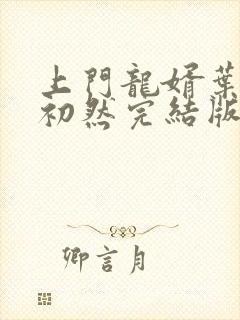 上門龍婿葉
初然完結版
卿言月